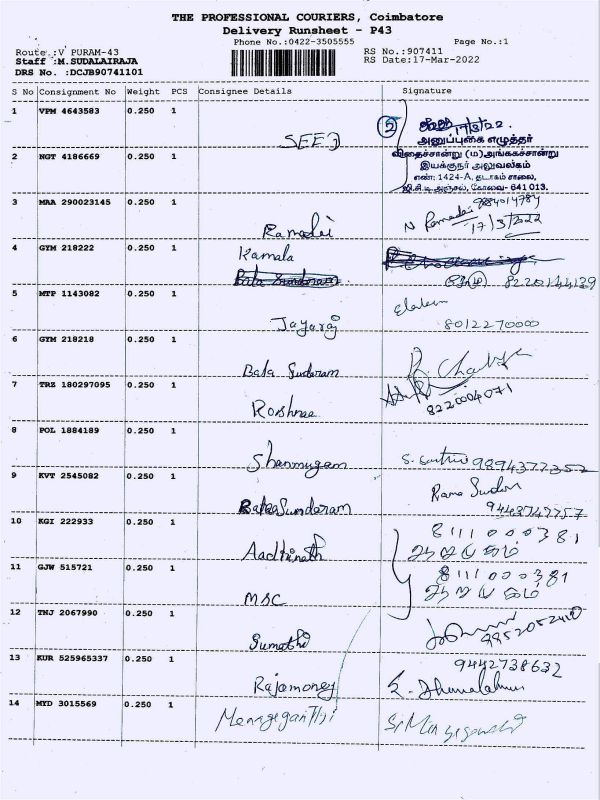 THE PROFESSIONAL COURIERS, Coimbatore
Delivery Runsheet - P43
Phone No.:0422-3505555 Page No.:1
Route.:V PURAM-43 RS No.:907411
Staff :M.SUDALAIRAJA RS Date:17-Mar-2022
DRS No. :DCJB90741101
S No Consignment No Weight PCS Consignee Details Signature
1 VPM 4643583 0.250 1
SEED 2 17/3/22
அனுப்புகை எழுத்தர்
விதைச்சான்று (ம)அங்ககச்சான்று
இயக்குநர் அலுவலகம்
எண்: 1424-A, தடாகம் சாலை,
ஜி.சி.டி அஞ்சல், கோவை- 641 013.
2 NGT 4186669 0.250 1
3 MAA 290023145 0.250 1
Ramadai N Ramadai 9884014784
17/3/2022
4 GTM 218222 0.250 1 Kamala
Bala Sundaram 8220144139
5 MTP 1143082 0.250 1
Jayaraj 8012270000
6 GTM 218218 0.250 1
Bala Sundaram
7 TRZ 180297095 0.250 1
Roshnee 8220004071
8 POL 1884189 0.250 1
Shanmugam 9894377352
9 KVT 2545082 0.250 1 Rama Sundar
BalaSundaram 9443747757
10 KGI 222933 0.250 1 8111000381
Aadhinath
11 GJW 515721 0.250 1 8111000381
MSC
12 TNJ 2067990 0.250 1
Sumathi
13 KUR 525965337 0.250 1 9442738632
Rajamoney
14 MYD 3015569 0.250 1